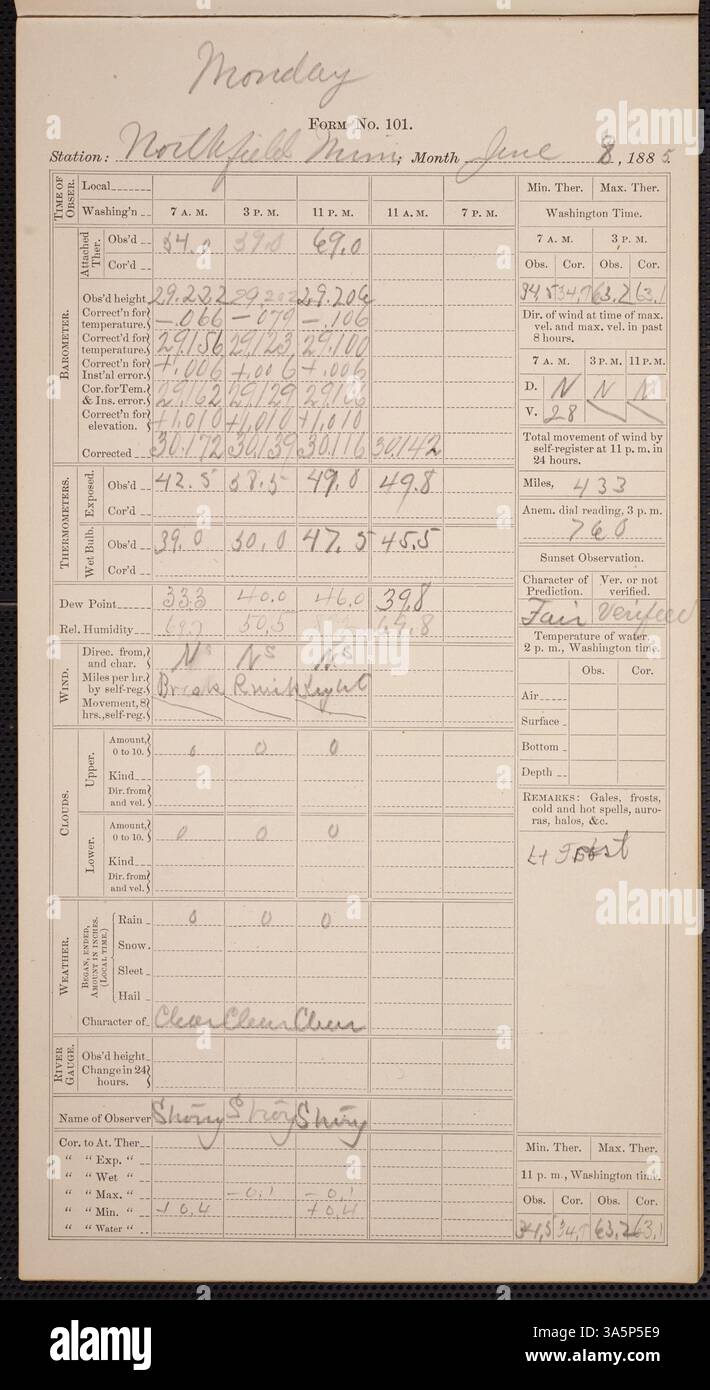 Monday
FORM NO. 101.
Station: Northfield Minn; Month June 8, 1885.
TIME OF OBSER.
Local
Washing'n 7 A. M. 3 P. M. 11 P. M. 11 A. M. 7 P. M.
Min. Ther. Max. Ther.
Washington Time.
7 A. M. 3 P. M.
Obs. Cor. Obs. Cor.
34.5 34.9 63.2 63.1
BAROMETER.
Attached Ther.
Obs'd 54.0 59.0 69.0
Cor'd
Obs'd height 29.222 29.202 29.206
Correct'n for temperature. -.066 -079 -.106
Correct'd for temperature. 29.156 29.123 29.100
Correct'n for Inst'al error. +.006 +.006 +.006
Cor. for Tem. & Ins. error. 29.162 29.129 29.106
Correct'n for elevation. +1.010 +1.010 +1.010
Corrected 30.172 30.139 30.116 30.142
Dir. of wind at time of max. vel. and max. vel. in past 8 hours.
7 A. M. 3 P. M. 11 P. M.
D. N N N
V. 28
Total movement of wind by self-register at 11 p. m. in 24 hours.
Miles, 433
Anem. dial reading, 3 p. m.
760
THERMOMETERS.
Exposed.
Obs'd 42.5 58.5 49.0 49.8
Cor'd
Wet Bulb.
Obs'd 39.0 50.0 47.5 45.5
Cor'd
Sunset Observation.
Character of Prediction. Ver. or not verified.
Fair Verified
Dew Point 33.3 40.0 46.0 39.8
Rel. Humidity 50.5 69.8
Temperature of water, 2 p. m., Washington time.
Obs. Cor.
Air
Surface
Bottom
Depth
WIND.
Direc. from, and char. Ns Ns Ns
Miles per hr. by self-reg. Brisk Light
Movement, 8 hrs., self-reg.
CLOUDS.
Upper.
Amount, 0 to 10. 0 0 0
Kind
Dir. from and vel.
Lower.
Amount, 0 to 10. 0 0 0
Kind
Dir. from and vel.
REMARKS: Gales, frosts, cold and hot spells, auroras, halos, &c.
Lt Frost
WEATHER.
BEGAN, ENDED, AMOUNT IN INCHES. (LOCAL TIME.)
Rain 0 0 0
Snow.
Sleet
Hail
Character of Clear Clear Clear
RIVER GAUGE.
Obs'd height
Change in 24 hours.
Name of Observer
Cor. to At. Ther
" " Exp. "
" " Wet "
" " Max. " -0.1 -0.1
" " Min. " +0.4 +0.4
" " Water "
Min. Ther. Max. Ther.
11 p. m., Washington time.
Obs. Cor. Obs. Cor.
34.5 34.9 63.2 63.1
alamy
alamy
alamy
Image ID: 3A5P5E9
www.alamy.com